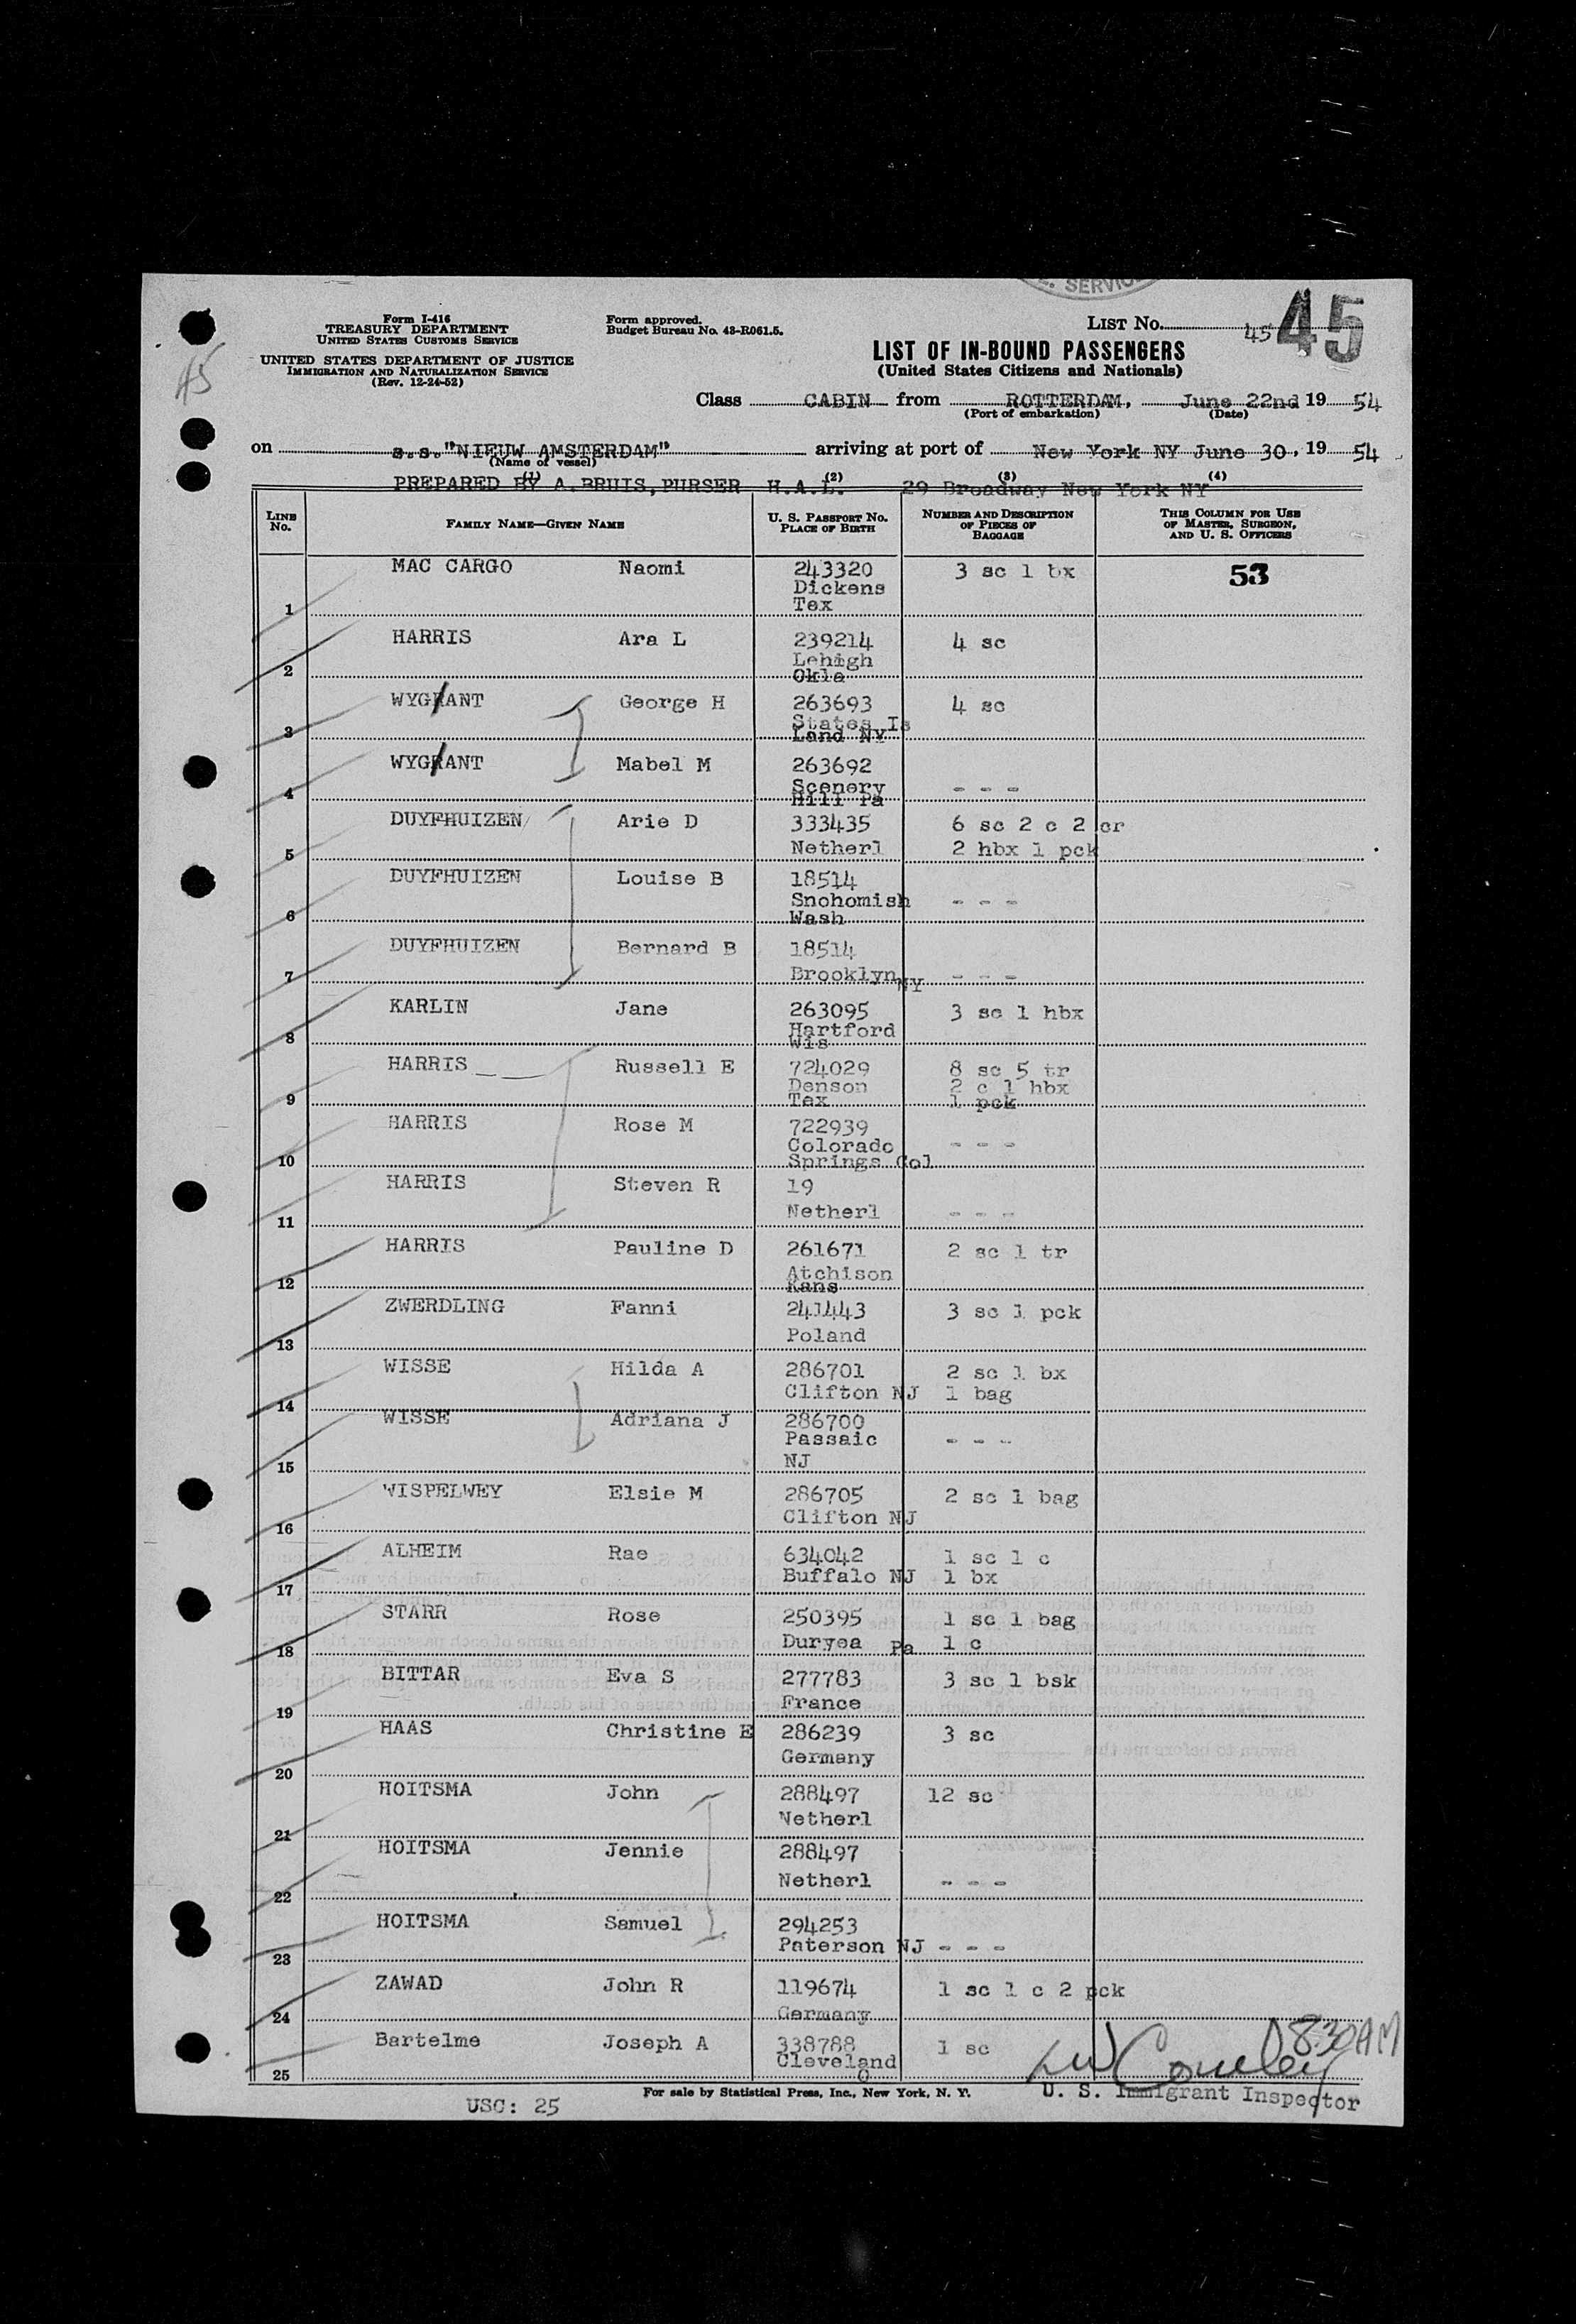 SERVICE
Form I-416
TREASURY DEPARTMENT
UNITED STATES CUSTOMS SERVICE
UNITED STATES DEPARTMENT OF JUSTICE
IMMIGRATION AND NATURALIZATION SERVICE
(Rev. 12-24-52)
Form approved.
Budget Bureau No. 43-R061.5.
LIST No. 45 45
45
LIST OF IN-BOUND PASSENGERS
(United States Citizens and Nationals)
Class CABIN from ROTTERDAM, June 22nd 19 54
(Port of embarkation) (Date)
on s.s."NIEUW AMSTERDAM" arriving at port of New York NY June 30, 19 54
(Name of vessel)
(1) (2) (3) (4)
PREPARED BY A.BRUIS, PURSER H.A.L. 29 Broadway New York NY
LINE No. FAMILY NAME—GIVEN NAME U. S. PASSPORT NO. PLACE OF BIRTH NUMBER AND DESCRIPTION OF PIECES OF BAGGAGE THIS COLUMN FOR USE OF MASTER, SURGEON, AND U. S. OFFICERS
MAC CARGO Naomi 243320 3 sc 1 bx 53
Dickens
1 Tex
HARRIS Ara L 239214 4 sc
Lehigh
2 Okla
WYGRANT George H 263693 4 sc
States Is
3 Land NY
WYGRANT Mabel M 263692
Scenery - - -
4 Hill Pa
DUYFHUIZEN Arie D 333435 6 sc 2 c 2 cr
5 Netherl 2 hbx 1 pck
DUYFHUIZEN Louise B 18514
Snohomish - - -
6 Wash
DUYFHUIZEN Bernard B 18514
7 Brooklyn NY - - -
KARLIN Jane 263095 3 sc 1 hbx
Hartford
8 Wis
HARRIS Russell E 724029 8 sc 5 tr
Denson 2 c 1 hbx
9 Tex 1 pck
HARRIS Rose M 722939
Colorado - - -
10 Springs Col
HARRIS Steven R 19
11 Netherl - - -
HARRIS Pauline D 261671 2 sc 1 tr
Atchison
12 Kans
ZWERDLING Fanni 241443 3 sc 1 pck
13 Poland
WISSE Hilda A 286701 2 sc 1 bx
14 Clifton NJ 1 bag
WISSE Adriana J 286700
Passaic - - -
15 NJ
WISPELWEY Elsie M 286705 2 sc 1 bag
16 Clifton NJ
ALHEIM Rae 634042 1 sc 1 c
17 Buffalo NJ 1 bx
STARR Rose 250395 1 sc 1 bag
18 Duryea Pa 1 c
BITTAR Eva S 277783 3 sc 1 bsk
19 France
HAAS Christine E 286239 3 sc
20 Germany
HOITSMA John 288497 12 sc
21 Netherl
HOITSMA Jennie 288497
22 Netherl - - -
HOITSMA Samuel 294253
23 Paterson NJ - - -
ZAWAD John R 119674 1 sc 1 c 2 pck
24 Germany
Bartelme Joseph A 338788 1 sc
Cleveland
25 O
8:30AM
For sale by Statistical Press, Inc., New York, N. Y.
U. S. Immigrant Inspector
USC: 25